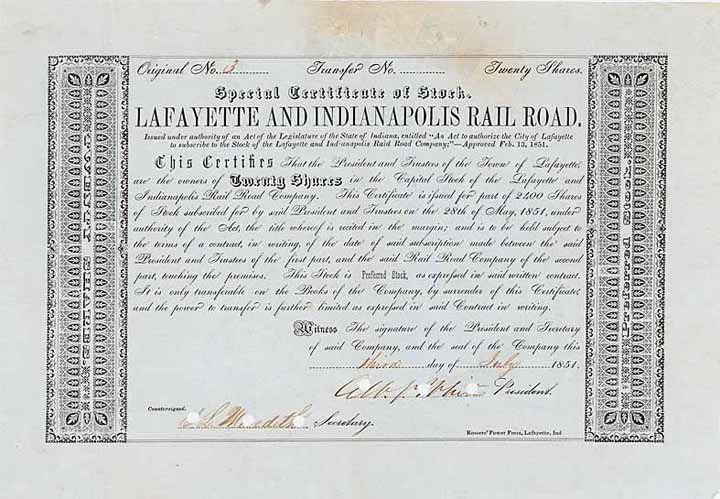 Original No. 13 Transfer No. Twenty Shares.
Special Certificate of Stock.
LAFAYETTE AND INDIANAPOLIS RAIL ROAD.
Issued under authority of an Act of the Legislature of the State of Indiana, entitled "An Act to authorize the City of Lafayette
to subscribe to the Stock of the Lafayette and Ind-anapolis Raid Road Company;"—Approved Feb. 13, 1851.
This Certifies That the President and Trustees of the Town of Lafayette,
are the owners of Twenty Shares in the Capital Stock of the Lafayette and
Indianapolis Rail Road Company. This Certificate is issued for part of 2400 Shares
of Stock subscribed for by said President and Trustees on the 28th of May, 1851, under
authority of the Act, the title whereof is recited in the margin; and is to be held subject
to the terms of a contract, in writing, of the date of said subscription made between the said
President and Trustees of the first part, and the said Rail Road Company of the second
part, touching the premises. This Stock is Preferred Stock, as expressed in said written contract.
It is only transferable on the Books of the Company, by surrender of this Certificate,
and the power to transfer is further limited as expressed in said Contract in writing.
Witness The signature of the President and Secretary
of said Company, and the seal of the Company this
third day of July 1851.
Alb. S. White President.
Countersigned,
Meredith Secretary.
Rosser's' Power Press, Lafayette, Ind